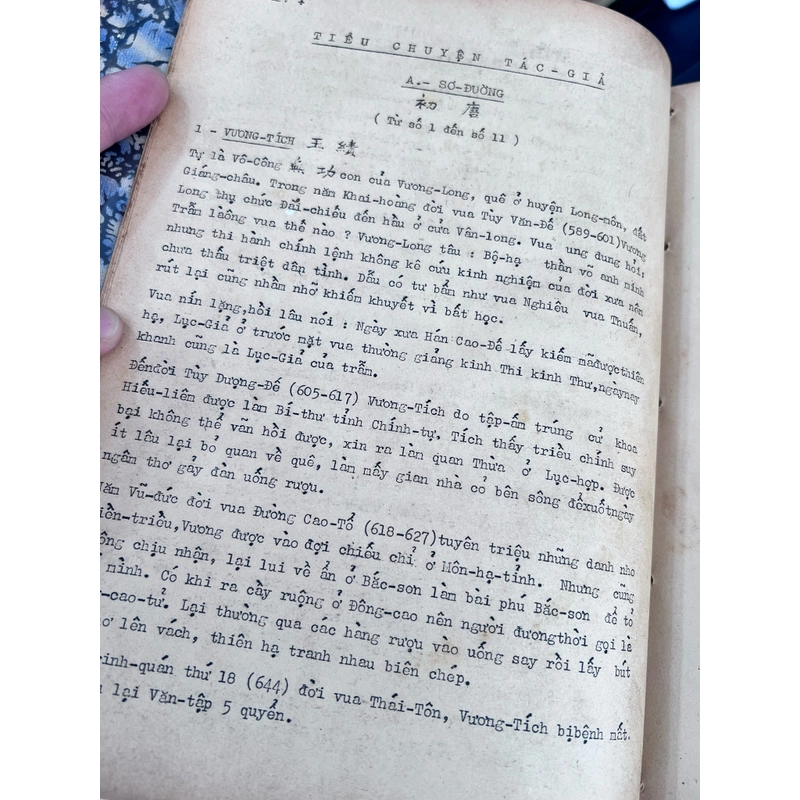 TIÊU CHUYỆN TÁC-GIẢ
A.- SƠ-ĐƯỜNG
初 唐
( Từ số 1 đến số 11 )
1 - VƯƠNG-TÍCH 王 績
Tự là Vô-Công 無 功 con của Vương-Long, quê ở huyện Long-môn, đất
Giáng-châu. Trong năm Khai-hoàng đời vua Tùy Văn-Đế (589-601)Vương
Long thụ chức Đãi-chiếu đến hầu ở cửa Vân-long. Vua ung dung hỏi:
Trẫm làông vua thế nào ? Vương-Long tâu : Bộ-hạ thần võ anh minh
nhưng thi hành chính lệnh không kê cứu kinh nghiệm của đời xưa nên
chưa thấu triệt dân tình. Dẫu có tư bẩm như vua Nghiêu vua Thuấn,
rút lại cũng nhầm nhỡ khiếm khuyết vì bất học.
Vua nín lặng,hồi lâu nói : Ngày xưa Hán Cao-Đế lấy kiếm mãđượcthiên
hạ, Lục-Giả ở trước mặt vua thường giảng kinh Thi kinh Thư,ngàynay
khanh cũng là Lục-Giả của trẫm.
Đếnđời Tùy Dượng-Đế (605-617) Vương-Tích do tập-ấm trúng cử khoa
Hiếu-liêm được làm Bí-thư tỉnh Chính-tự. Tích thấy triều chính suy
bại không thể vãn hồi được, xin ra làm quan Thừa ở Lục-hợp. Được
ít lâu lại bỏ quan về quê, làm mấy gian nhà cỏ bên sông đểxuốtngày
ngâm thơ gảy đàn uống rượu.
Năm Vũ-đức đời vua Đường Cao-Tổ (618-627)tuyên triệu những danh nho
iền-triều,Vương được vào đợi chiếu chỉ ở Môn-hạ-tỉnh. Nhưng cũng
ông chịu nhận, lại lui về ẩn ở Bắc-sơn làm bài phú Bắc-sơn để tỏ
mình. Có khi ra cầy ruộng ở Đông-cao nên người đươngthời gọi là
-cao-tử. Lại thường qua các hàng rượu vào uống say rồi lấy bút
ơ lên vách, thiên hạ tranh nhau biên chép.
rinh-quán thứ 18 (644) đời vua Thái-Tôn, Vương-Tích bịbệnh mất.
lại Văn-tập 5 quyển.